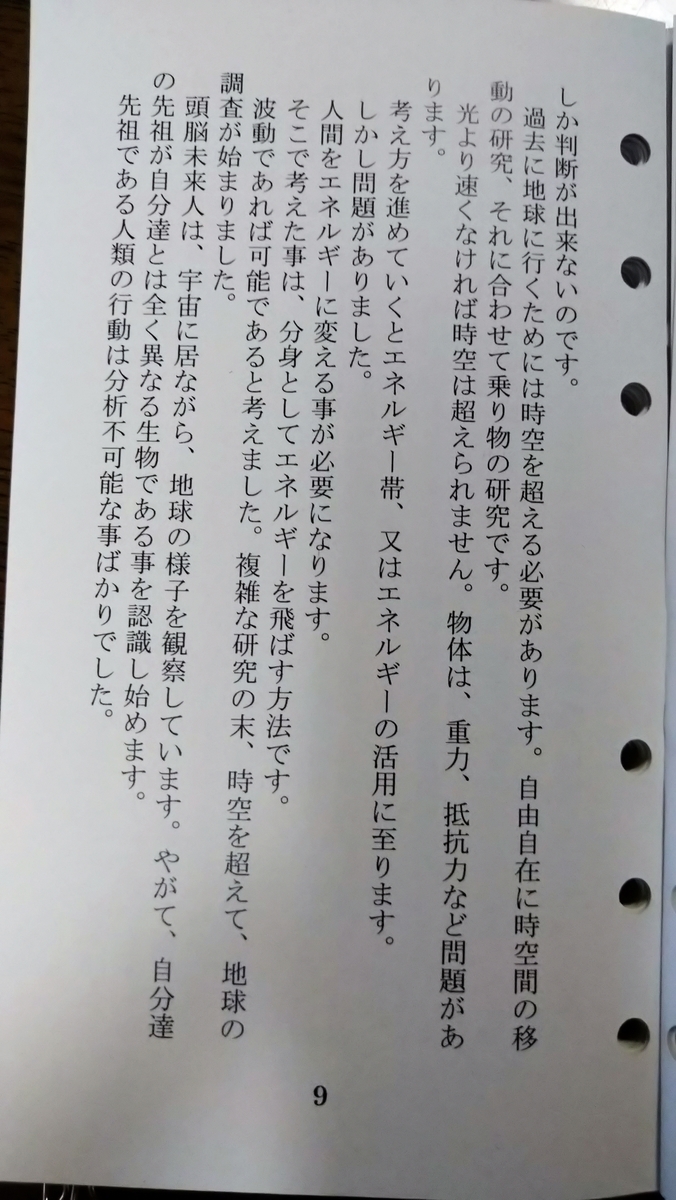 しか判断が出来ないのです。
過去に地球に行くためには時空を超える必要があります。自由自在に時空間の移
動の研究、それに合わせて乗り物の研究です。
光より速くなければ時空は超えられません。物体は、重力、抵抗力など問題があ
ります。
考え方を進めていくとエネルギー帯、又はエネルギーの活用に至ります。
しかし問題がありました。
人間をエネルギーに変える事が必要になります。
そこで考えた事は、分身としてエネルギーを飛ばす方法です。
波動であれば可能であると考えました。複雑な研究の末、時空を超えて、地球の
調査が始まりました。
頭脳未来人は、宇宙に居ながら、地球の様子を観察しています。やがて、自分達
の先祖が自分達とは全く異なる生物である事を認識し始めます。
先祖である人類の行動は分析不可能な事ばかりでした。
9